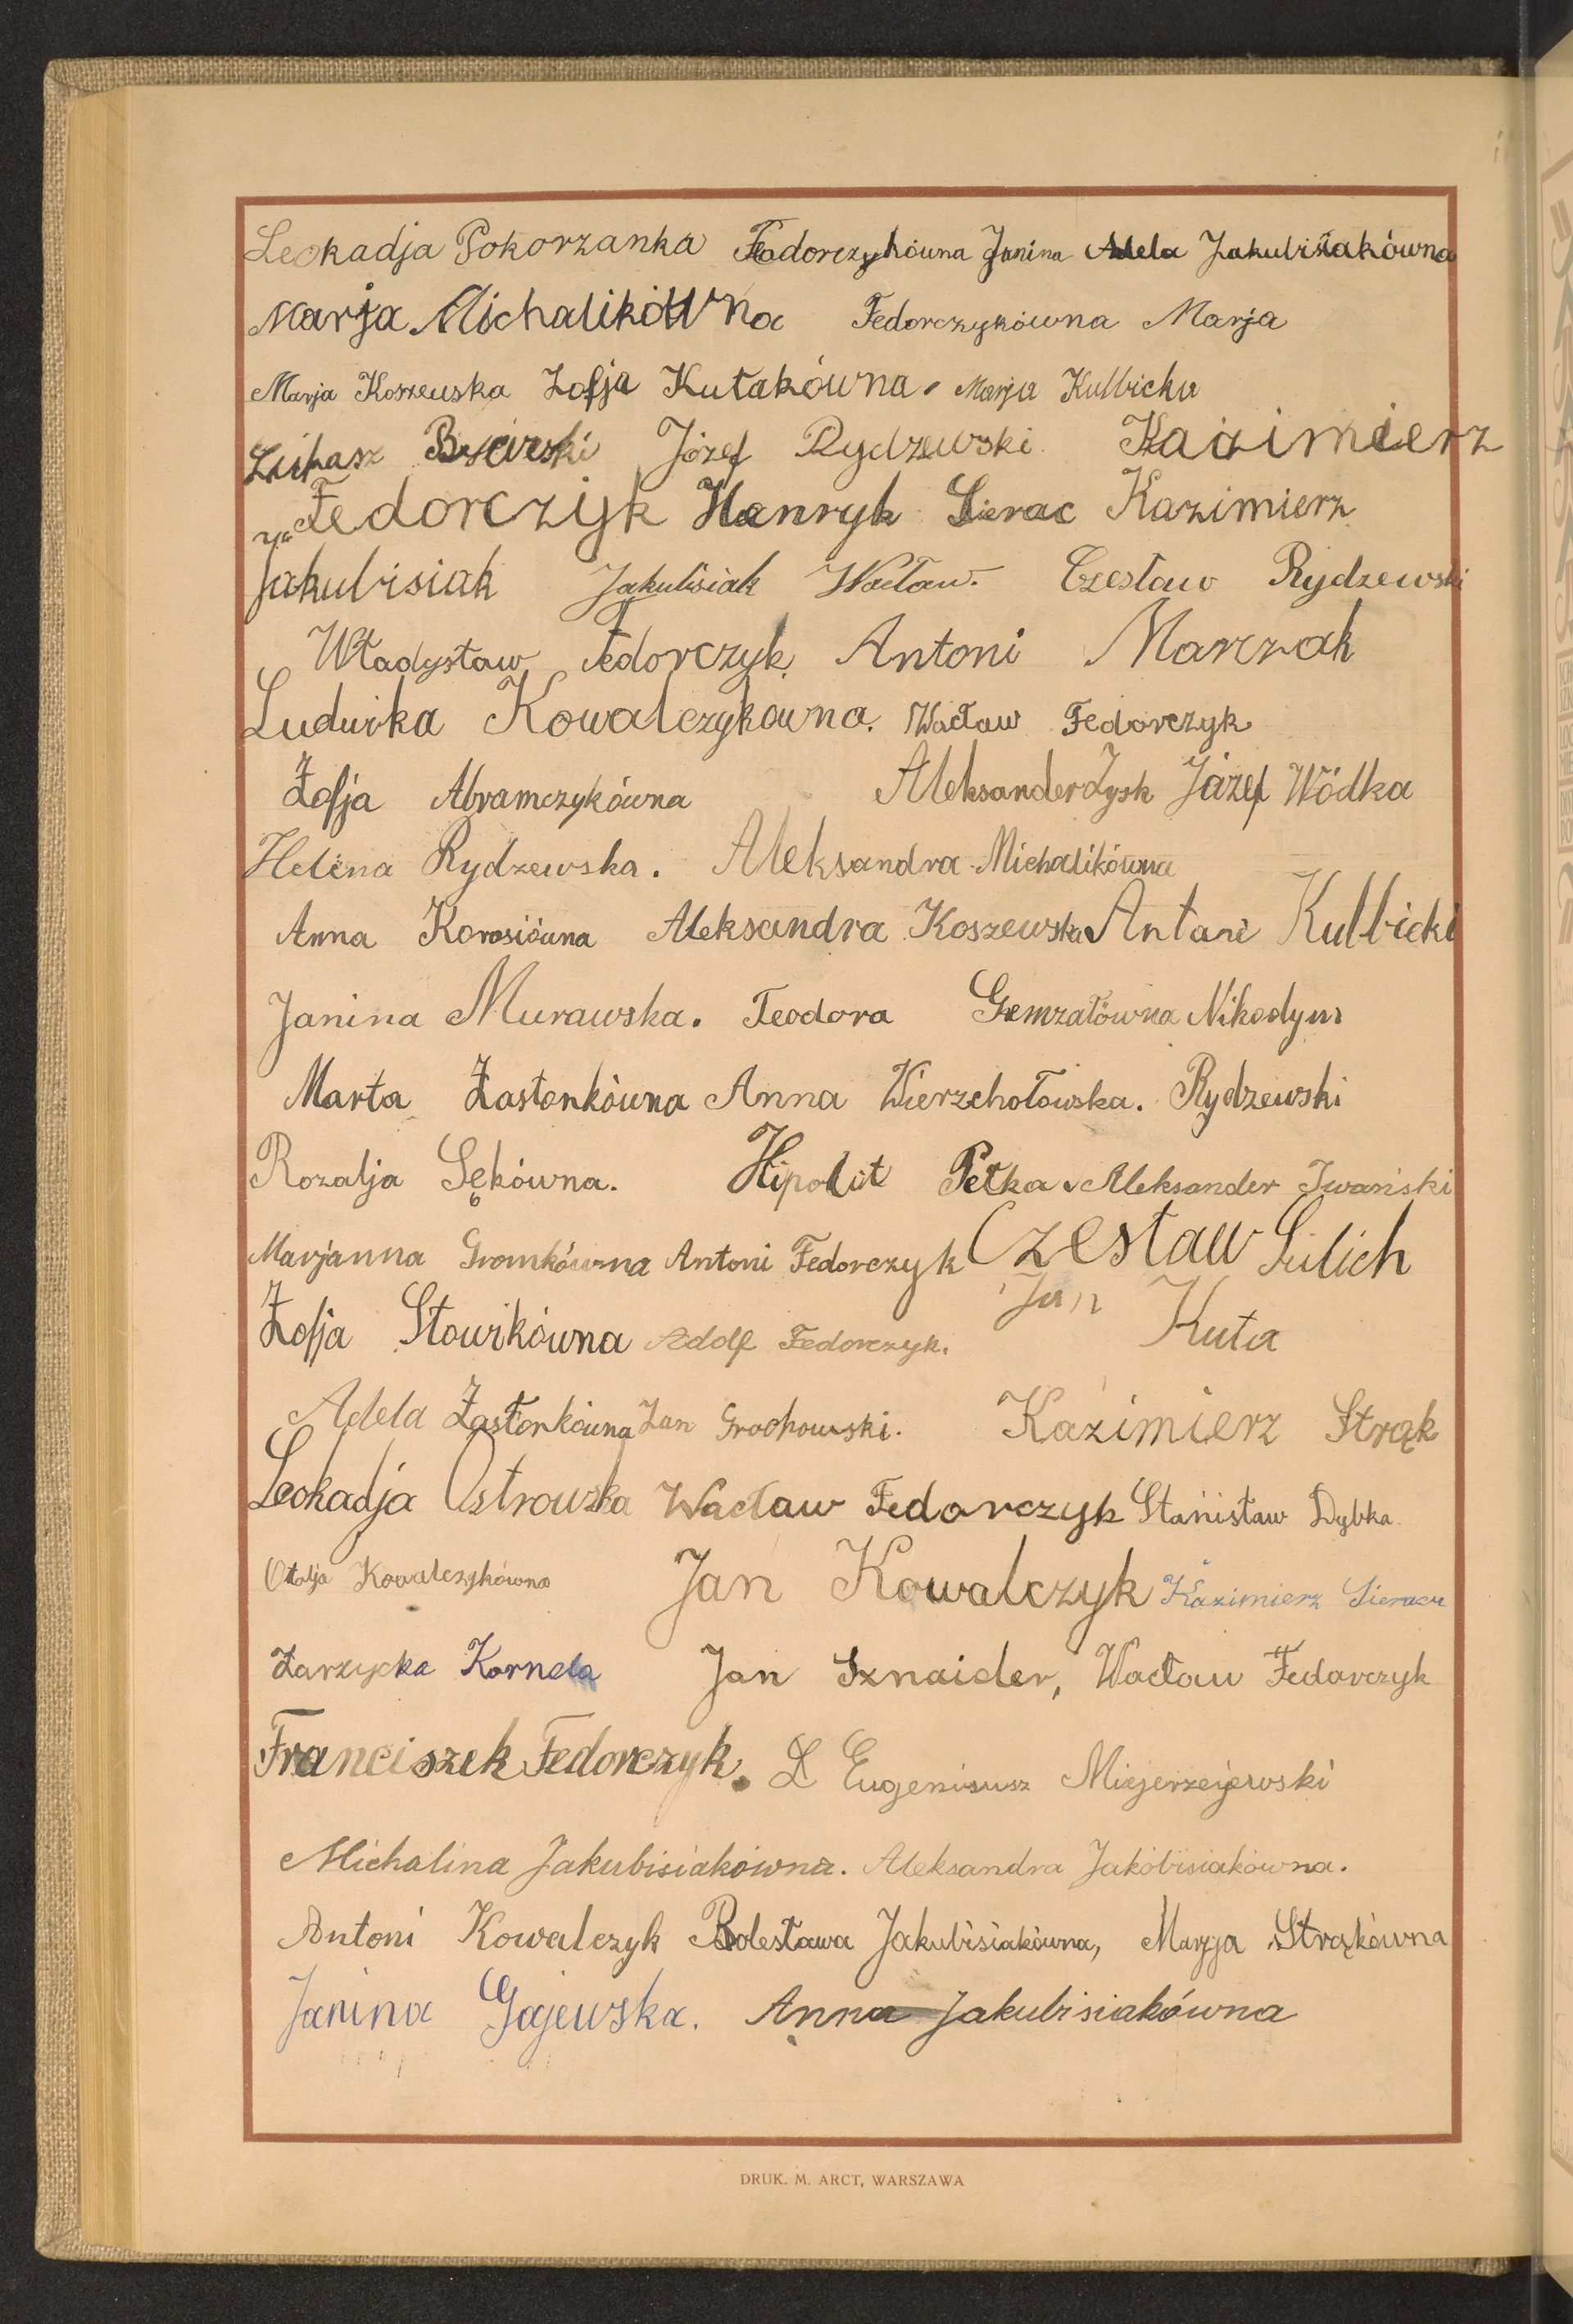 Leokadja Pokorzanka Fedorczykówna Janina Adela Jakubisiakówna
Marja Michalikówna Fedorczykówna Marja
Marja Koszewska Zofja Kutakówna Marja Kulbicka
Józef Rydzewski Kazimierz
Fedorczyk Henryk Sierac Kazimierz
Jakubisiak Jakubisiak Wacław. Czesław Rydzewski
Władysław Fedorczyk Antoni Marczak
Ludwika Kowalczykówna. Wacław Fedorczyk
Zofja Abramczykówna Aleksander Zysk Józef Wódka
Helena Rydzewska. Aleksandra Michalikówna
Anna Korosiówna Aleksandra Koszewska Antoni Kulbicki
Janina Murawska. Teodora Gemzałówna Nikodym
Marta Zasłonkówna Anna Wierzchołowska. Rydzewski
Rozalja Sękówna. Hipolit Petka Aleksander Iwański
Marjanna Gromkówna Antoni Fedorczyk Czesław Sulich
Jan
Zofja Słowikówna Adolf Fedorczyk. Kuta
Adela Zasłonkówna Jan Grochowski. Kazimierz Strąk
Leokadja Ostrowska Wacław Fedorczyk Stanisław Dybka
Otolja Kowalczykówna Jan Kowalczyk Kazimierz
Zarzycka Kornela Jan Sznaider, Wacław Fedorczyk
Franciszek Fedorczyk. Eugenisusz Miejerzejewski
Michalina Jakubisiakówna. Aleksandra Jakóbisiakówna.
Antoni Kowalczyk Bolesława Jakubisiakówna, Marja Strąkówna
Janina Gajewska. Anna Jakubisiakówna
DRUK. M. ARCT, WARSZAWA